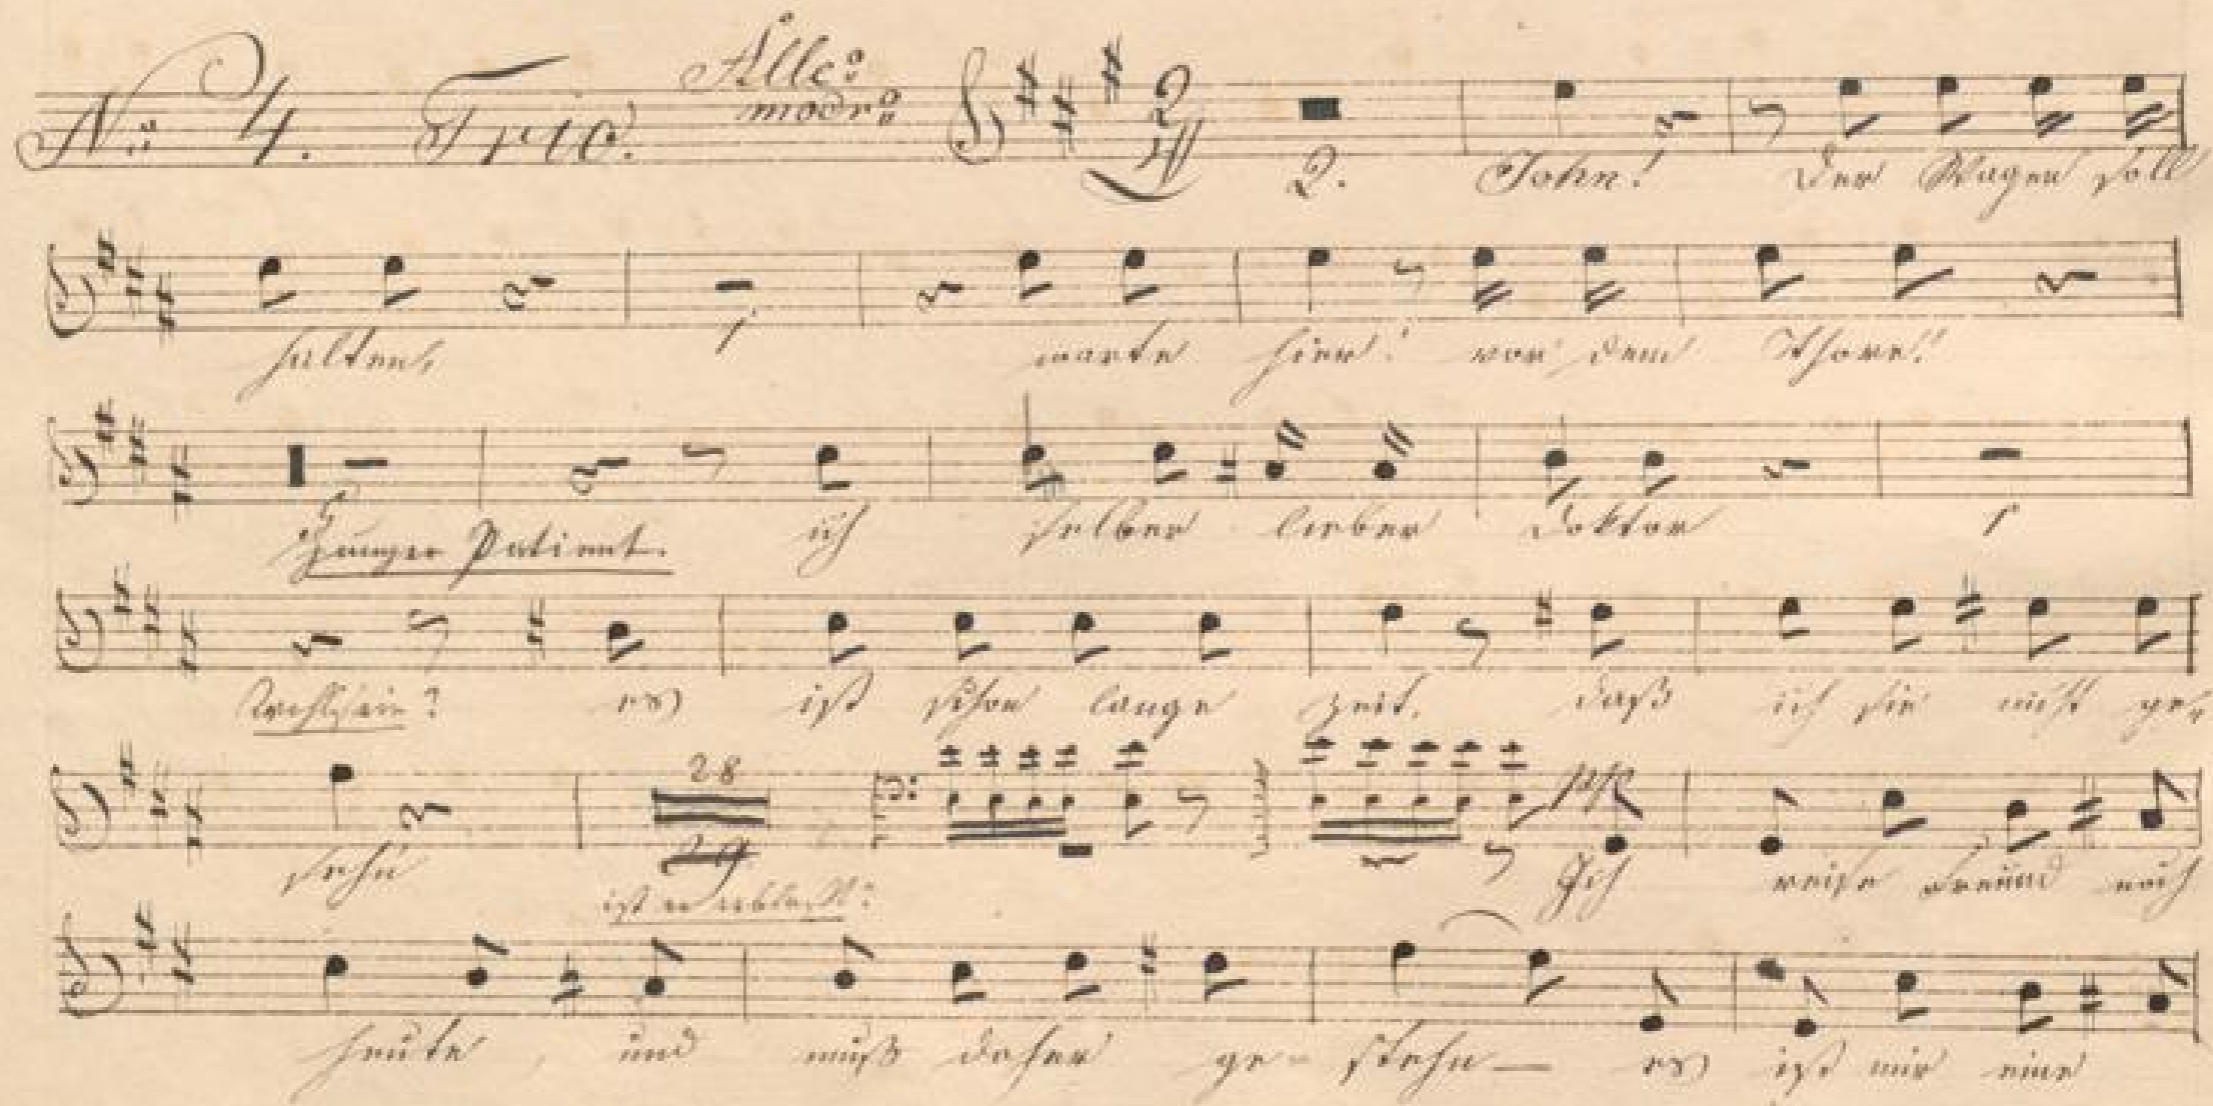 No: 4. Trio. Allo: modro:
2/4
2. John! Der Wagen soll
halten, 1 warte hier! vor dem Thore!
Junger Patient. ich selber lieber Doktor 1
es ist schon lange Zeit, daß ich sie nicht ge-
28
sehn 29 pp Ich reise Freund noch
heute, und muß daher ge- stehn — es ist mir eine